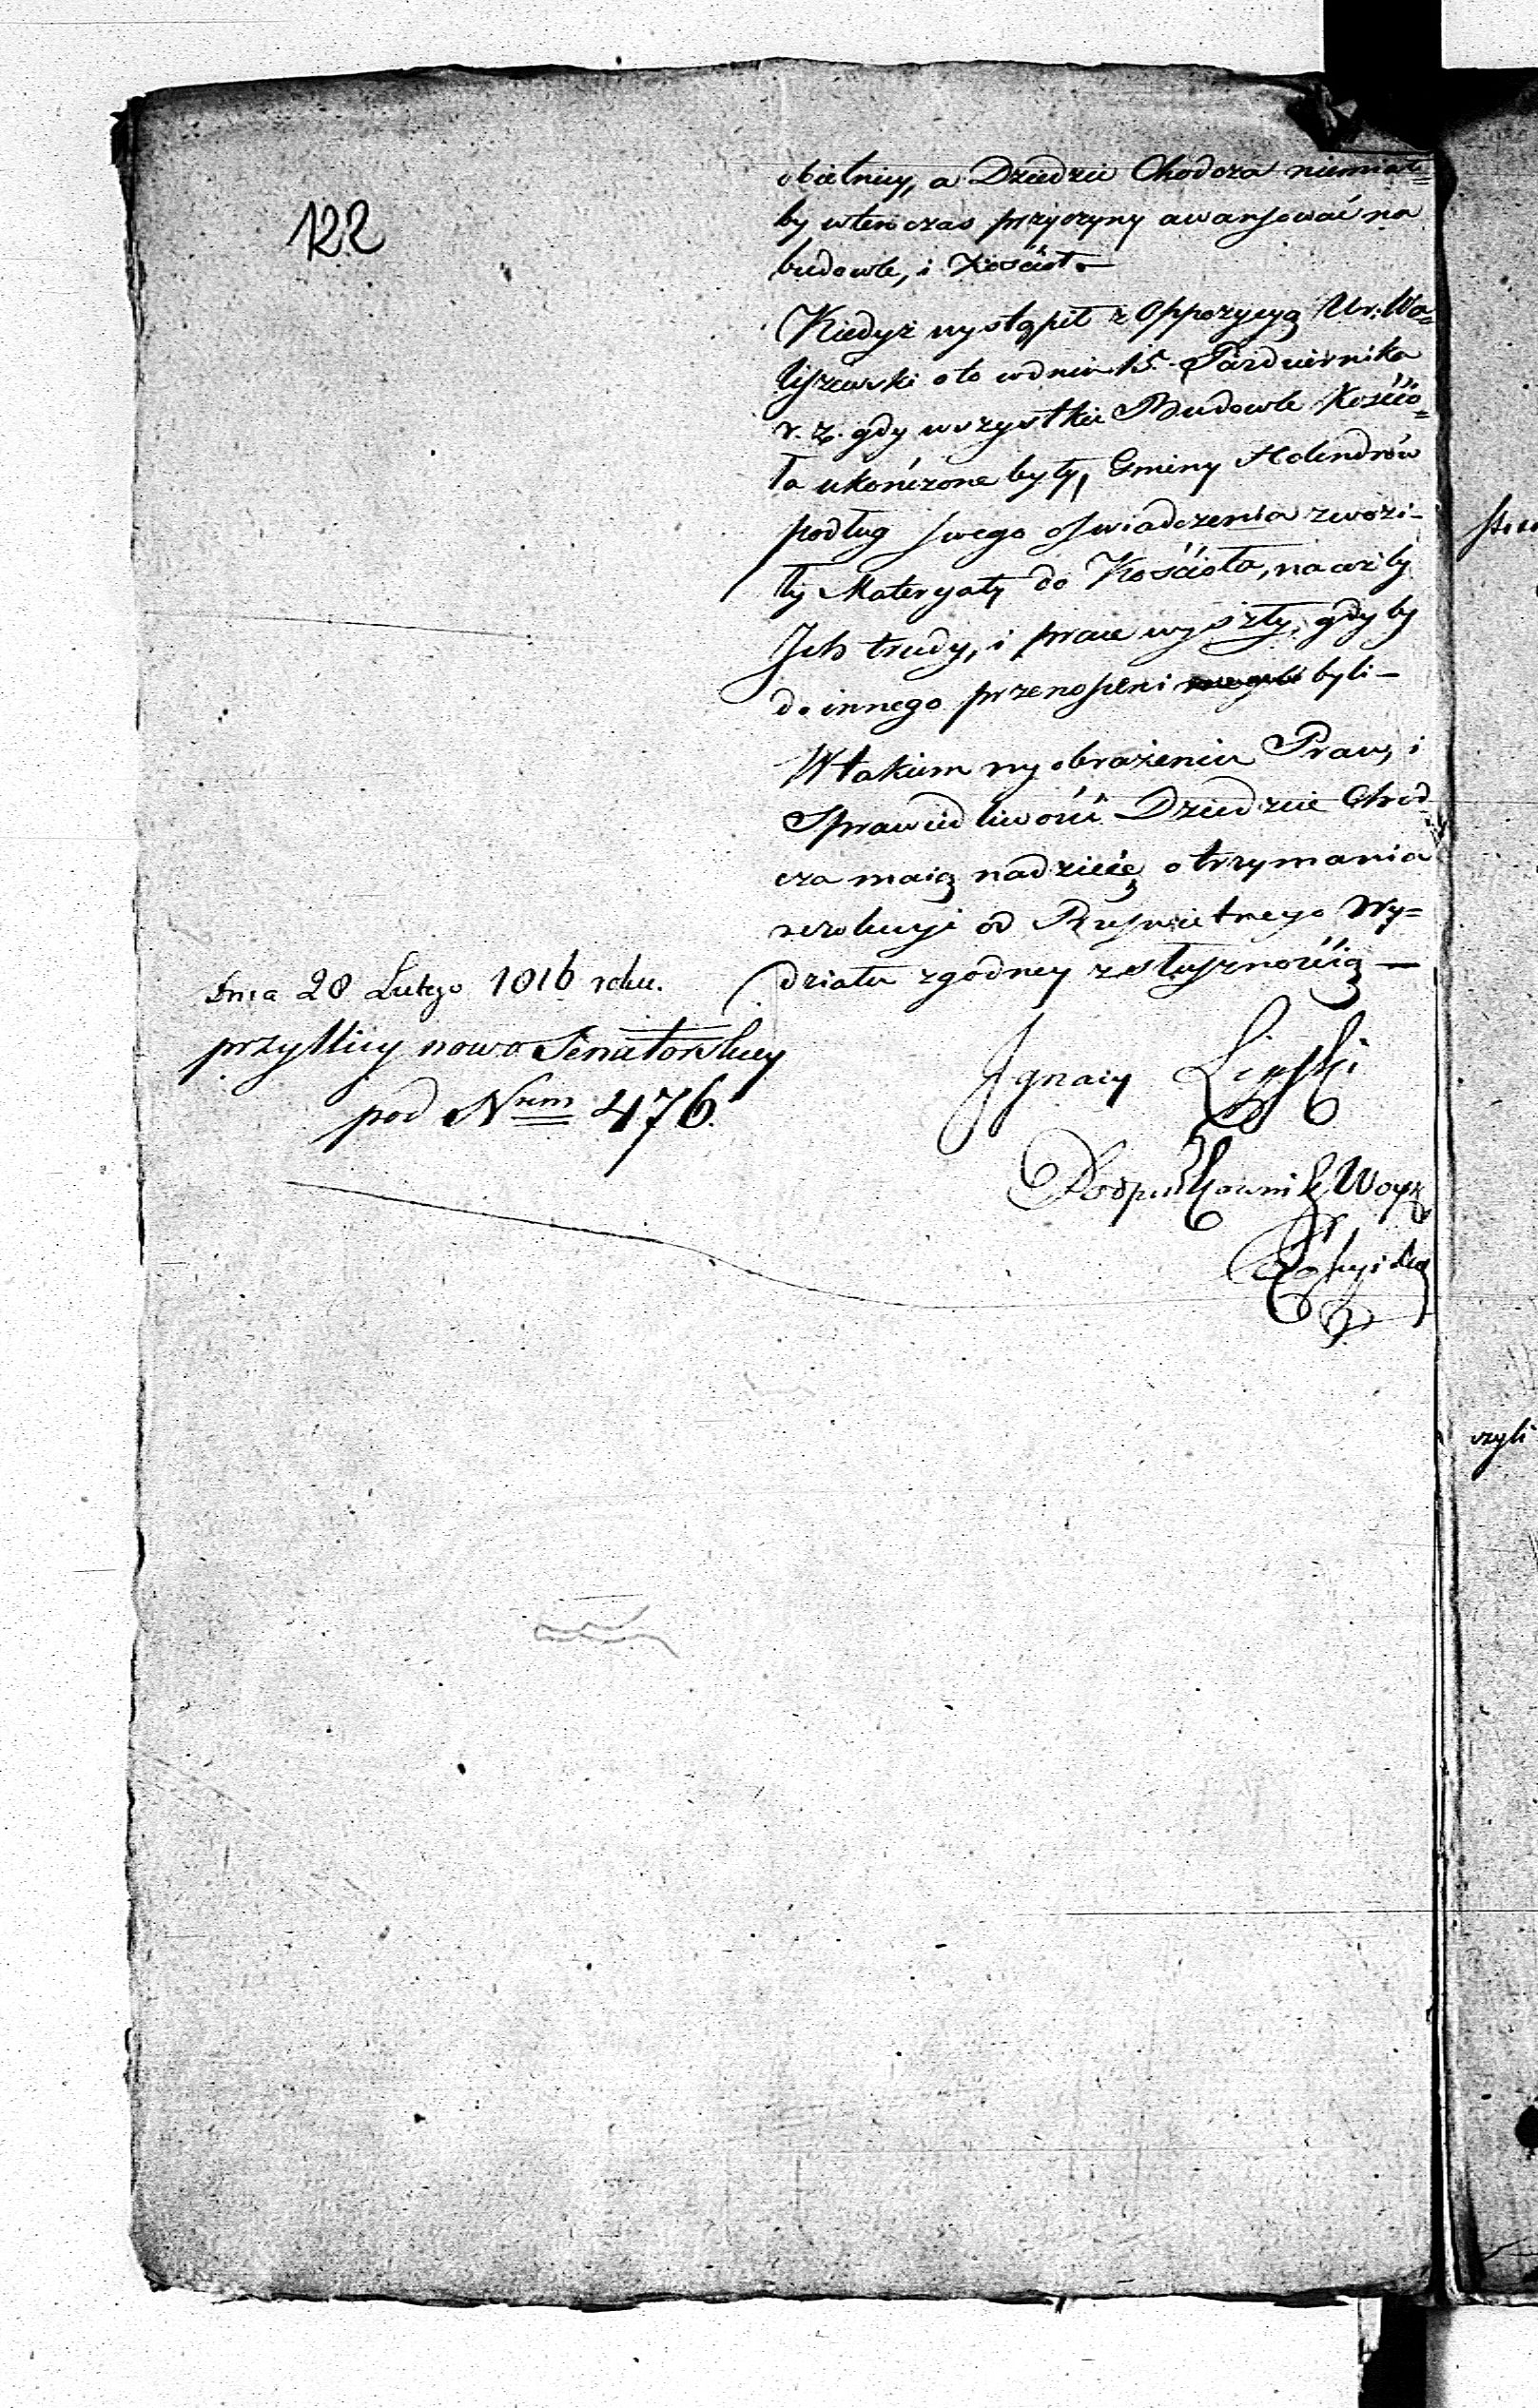 122
obietnicy, a Dziedzic Chodcza niemiał=
by wtenczas przyczyny awansować na
budowle, i Kościoł. —
Kiedyż wystąpił z Oppozycyą Ur: Wa=
liszewski oto w dniu 15. Października
r. z. gdy wszystkie Budowle Kościo=
ła ukończone były, Gminy Holendrów
podług swego oświadczenia zwozi-
ły Materyały do Kościoła, na coż by
Ich trudy, i prace wyszły, gdyby
do innego przenoszeni byli —
W takiem wyobrażeniu Praw, i
Sprawiedliwości Dziedzic Chod
cza maią nadzieię otrzymania
rezolucyi od Prześwietnego Wy=
działu zgodney z słusznością —
dnia 28 Lutego 1816 roku.
przy Ulicy nowo Senatorskiey
pod Nrem 476.
Ignacy Lipski
Podpułkownik Woysk
czyli